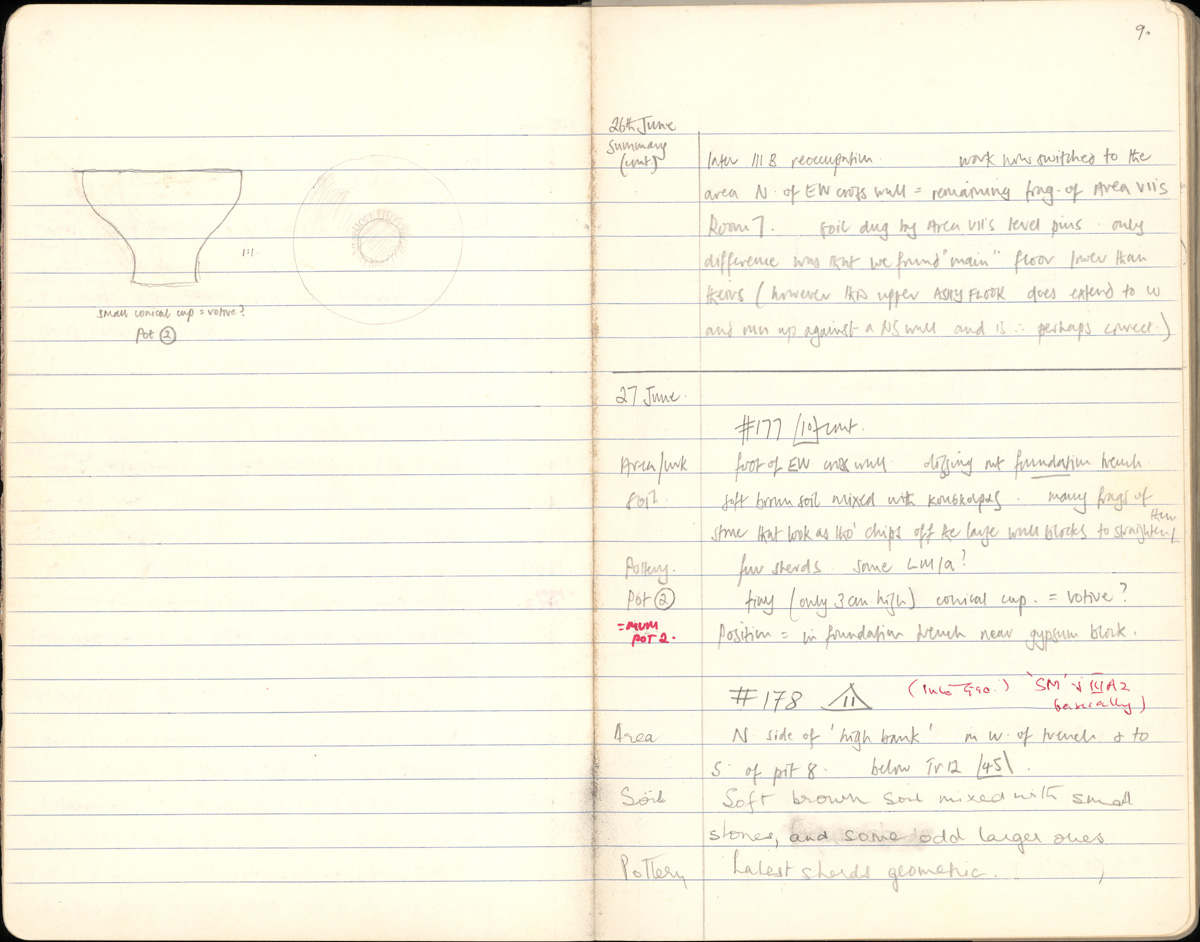 1:1
small conical cup = votive?
Pot 2
9.
26th June
Summary
(cont)
later III B reoccupation. work now switches to the
area N. of EW cross wall = remaining frag. of Area VII's
Room 7. Soil dug by Area VII's level pins. only
difference was that we found "main" floor lower than
theirs (however this upper ASHY FLOOR does extend to W
and run up against a NS wall and is ∴ perhaps correct.)
27 June.
#177 10 cont.
Area/wk foot of EW cross wall digging out foundation trench
Soil. soft brown soil mixed with kouskouras. many frags of
stone that look as tho' chips off the large wall blocks to straighten them
Pottery. few sherds. some LM/a?
Pot 2 tiny (only 3 cm. high) conical cup. = votive?
= MUM
POT 2. Position = in foundation trench near gypsum block.
#178 11 (into Geo.) 'SM' + III A2
basically)
Area N side of 'high bank' in W. of trench & to
S. of pit 8. below Tr 12 45.
Soil Soft brown soil mixed with small
stones, and some odd larger ones
Pottery Latest sherds geometric.